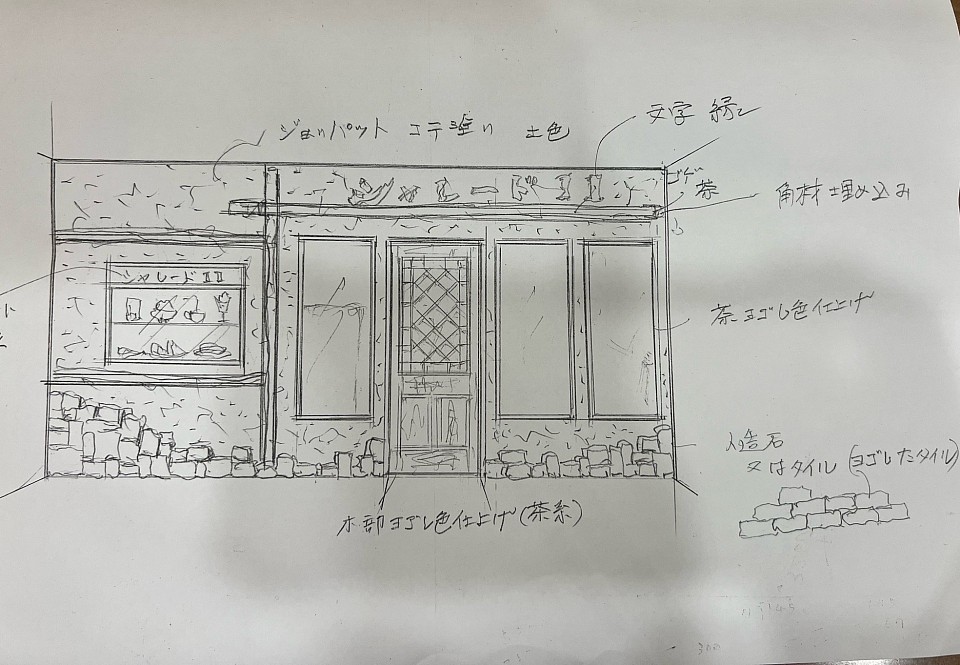 ジョリパット コテ塗り 土色
文字 緑
コゲ茶
角材 埋め込み
シャレードII
茶ヨゴし色仕上げ
人造石
又はタイル(ヨゴしたタイル)
木部ヨゴし色仕上げ(茶系)